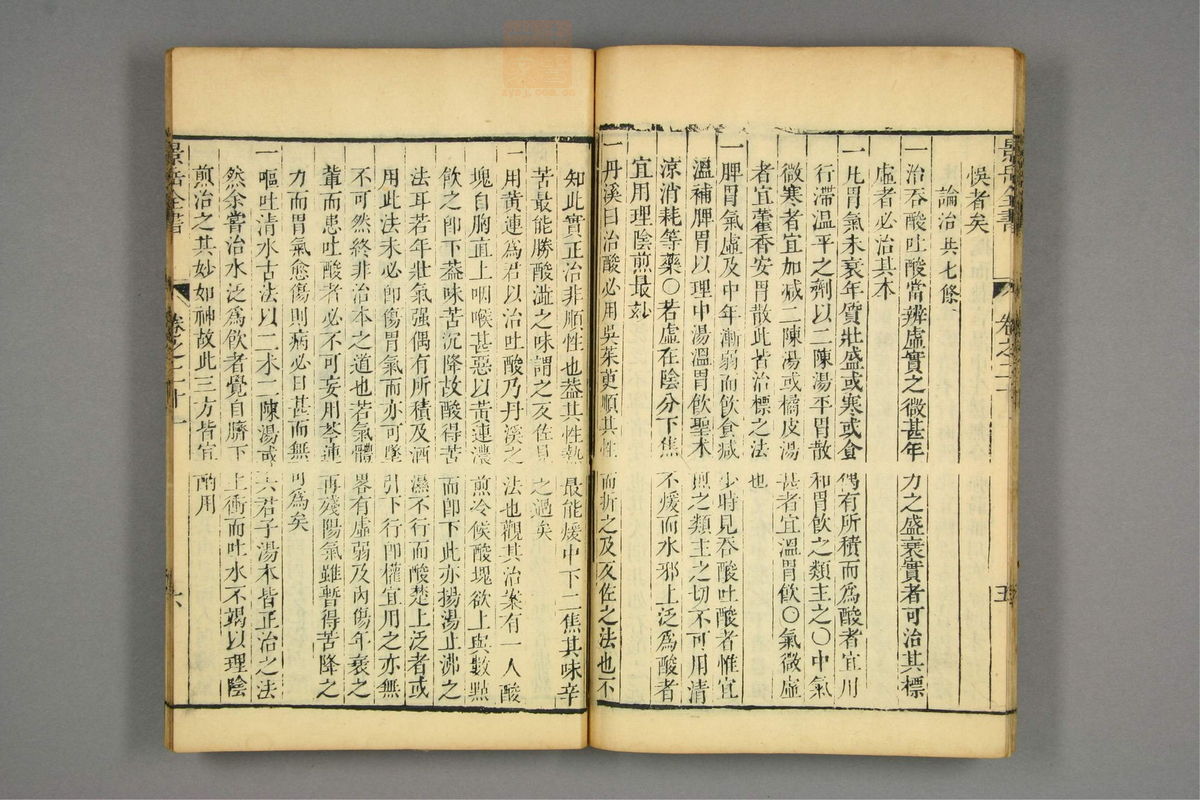 景岳全書
卷之二十一
五
悞者矣
論治 共七條
一治吞酸吐酸當辨虛實之微甚年力之盛衰實者可治其標
虛者必治其本
一凡胃氣未衰年質壯盛或寒或食偶有所積而為酸者宜用
行滯温平之劑以二陳湯平胃散和胃飲之類主之〇中氣
微寒者宜加減二陳湯或橘皮湯甚者宜溫胃飲〇氣微虛
者宜藿香安胃散此皆治標之法也
一脾胃氣虛及中年漸弱而飲食減少時見吞酸吐酸者惟宜
溫補脾胃以理中湯溫胃飲聖术煎之類主之切不可用清
涼消耗等藥〇若虛在陰分下焦不煖而水邪上泛為酸者
宜用理陰煎最妙
一丹溪曰治酸必用吳茱萸順其性而折之乃反佐之法也不
知此實正治非順性也葢其性熱最能煖中下二焦其味辛
苦最能勝酸澁之味謂之反佐見之過矣
一用黄連為君以治吐酸乃丹溪之法也觀其治案有一人酸
塊自胸直上咽喉甚惡以黄連濃煎冷候酸塊欲上與數㸃
飲之卽下葢味苦沉降故酸得苦而卽下此亦揚湯止沸之
法耳若年壯氣强偶有所積及酒濕不行而酸楚上泛者或
用此法未必卽傷胃氣而亦可墜引下行卽權宜用之亦無
不可然終非治本之道也若氣體畧有虛弱及內傷年衰之
輩而患吐酸者必不可妄用芩連再殘陽氣雖暫得苦降之
力而胃氣愈傷則病必日甚而無可為矣
一嘔吐清水古法以二术二陳湯或六君子湯本皆正治之法
然余嘗治水泛為飲者覺自臍下上衝而吐水不竭以理陰
煎治之其妙如神故此三方皆宜酌用
景岳全書
卷之二十一
六